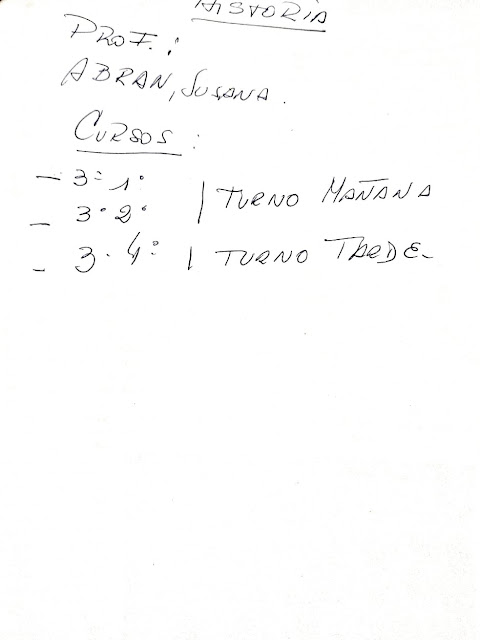 HISTORIA
PROF. :
ABRAN, SUSANA.
CURSOS :
- 3° 1°
- 3° 2° | TURNO MAÑANA
- 3° 4° | TURNO TARDE-